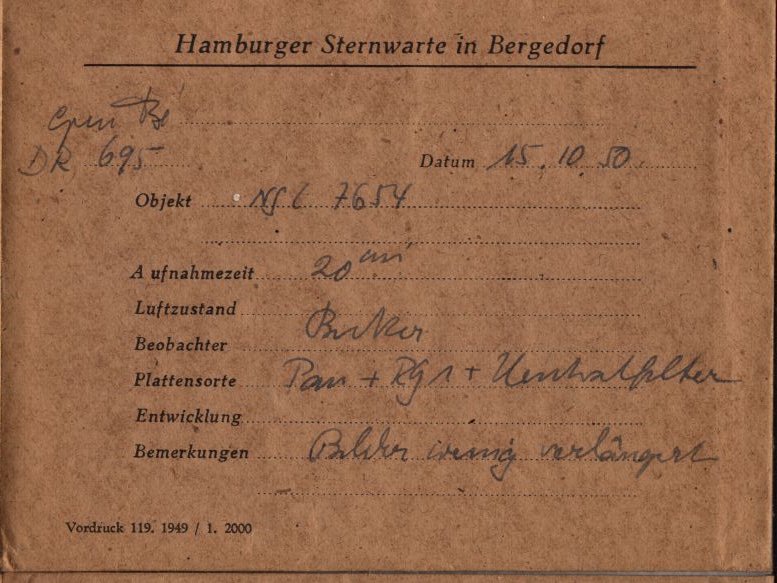 Hamburger Sternwarte in Bergedorf
DR 695
Datum 15.10.50.
Objekt NGC 7654
Aufnahmezeit 20 m
Luftzustand
Beobachter Becker
Plattensorte Pan + Rg1 + Neutralfilter
Entwicklung
Bemerkungen Bilder wenig verlängert
Vordruck 119. 1949 / 1. 2000